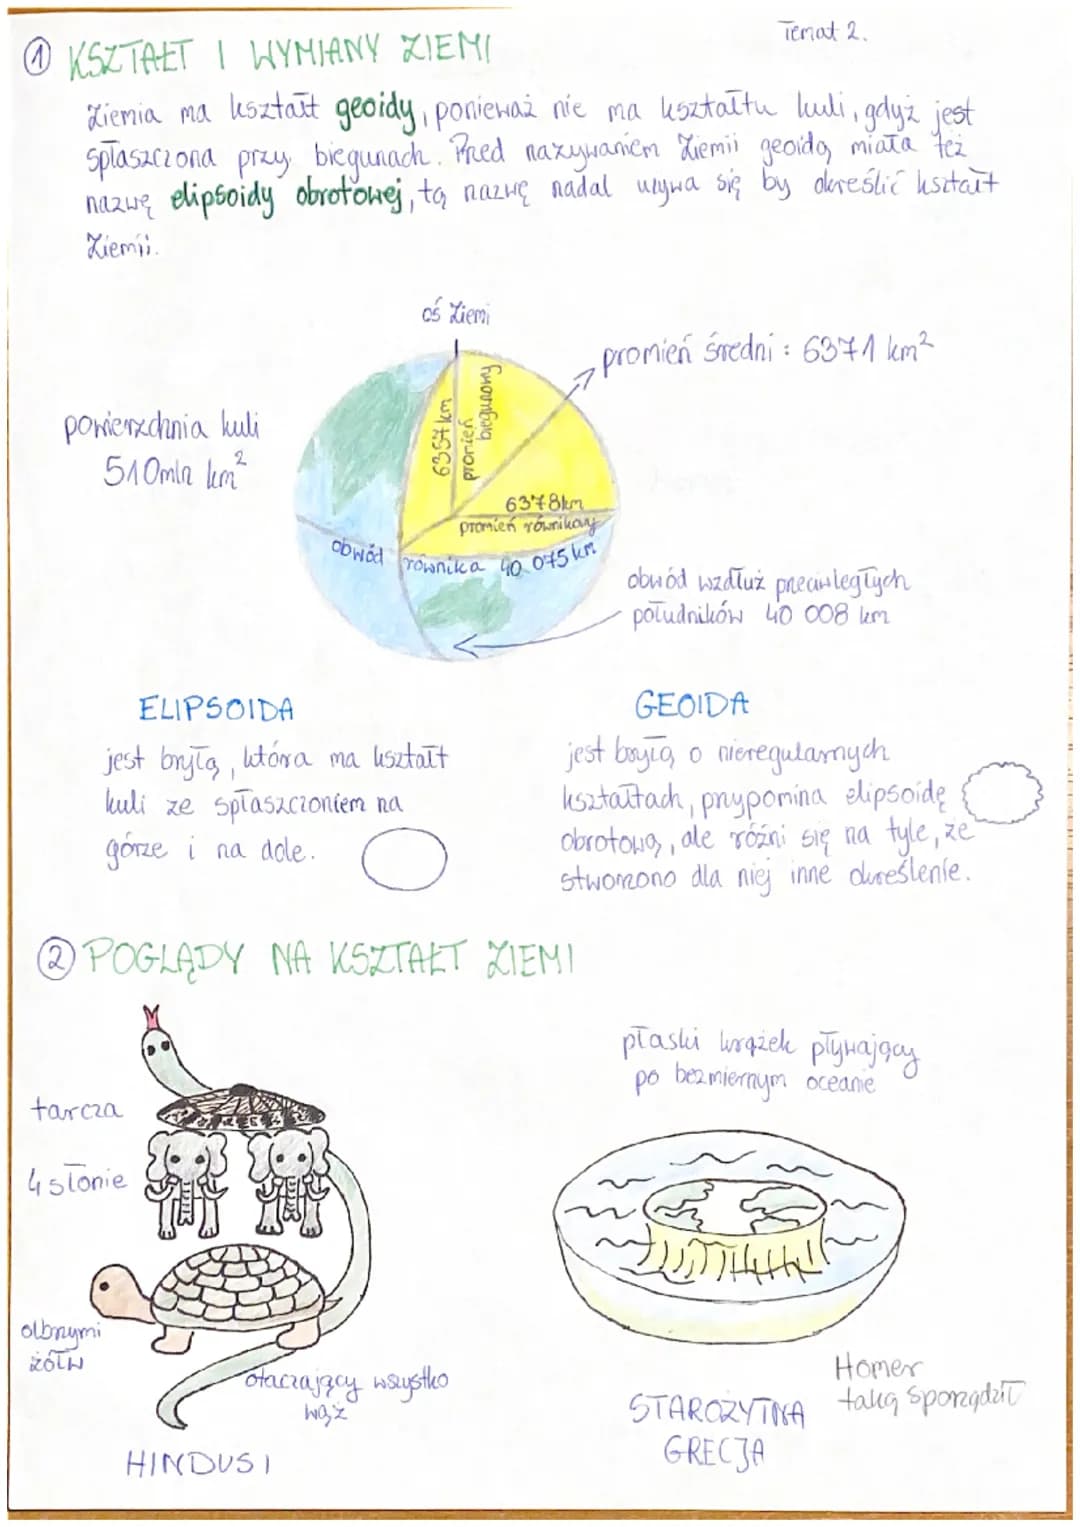 Temat 2.
① KSZTAŁT I WYMIANY ZIEMI
Ziemia ma kształt geoidy, ponieważ nie ma kształtu kuli, gdyż jest
spłaszczona przy biegunach. Przed nazywaniem Ziemii geoidą miała też
nazwę elipsoidy obrotowej, tą nazwę nadal używa się by określić kształt
Ziemii.
oś Ziemi
promień średni : 6371 km²
powierzchnia kuli
510mln km²
6357km
promień
biegunowy
6378km
promień równikowy
obwód równika 40 075 km
obwód wzdłuż przeciwległych
południków 40 008 km
ELIPSOIDA
jest bryłą, która ma kształt
kuli ze spłaszczoniem na
górze i na dole.
GEOIDA
jest bryłą o nieregularnych
kształtach, przypomina elipsoidę
obrotową, ale różni się na tyle, że
stworzono dla niej inne określenie.
② POGLĄDY NA KSZTAŁT ZIEMI
tarcza
4 słonie
olbrzymi
żółw
otaczający wszystko
wąż
HINDUSI
płaski krążek pływający
po bezmiernym oceanie
Homer
taką sporządził
STAROŻYTNA
GRECJA